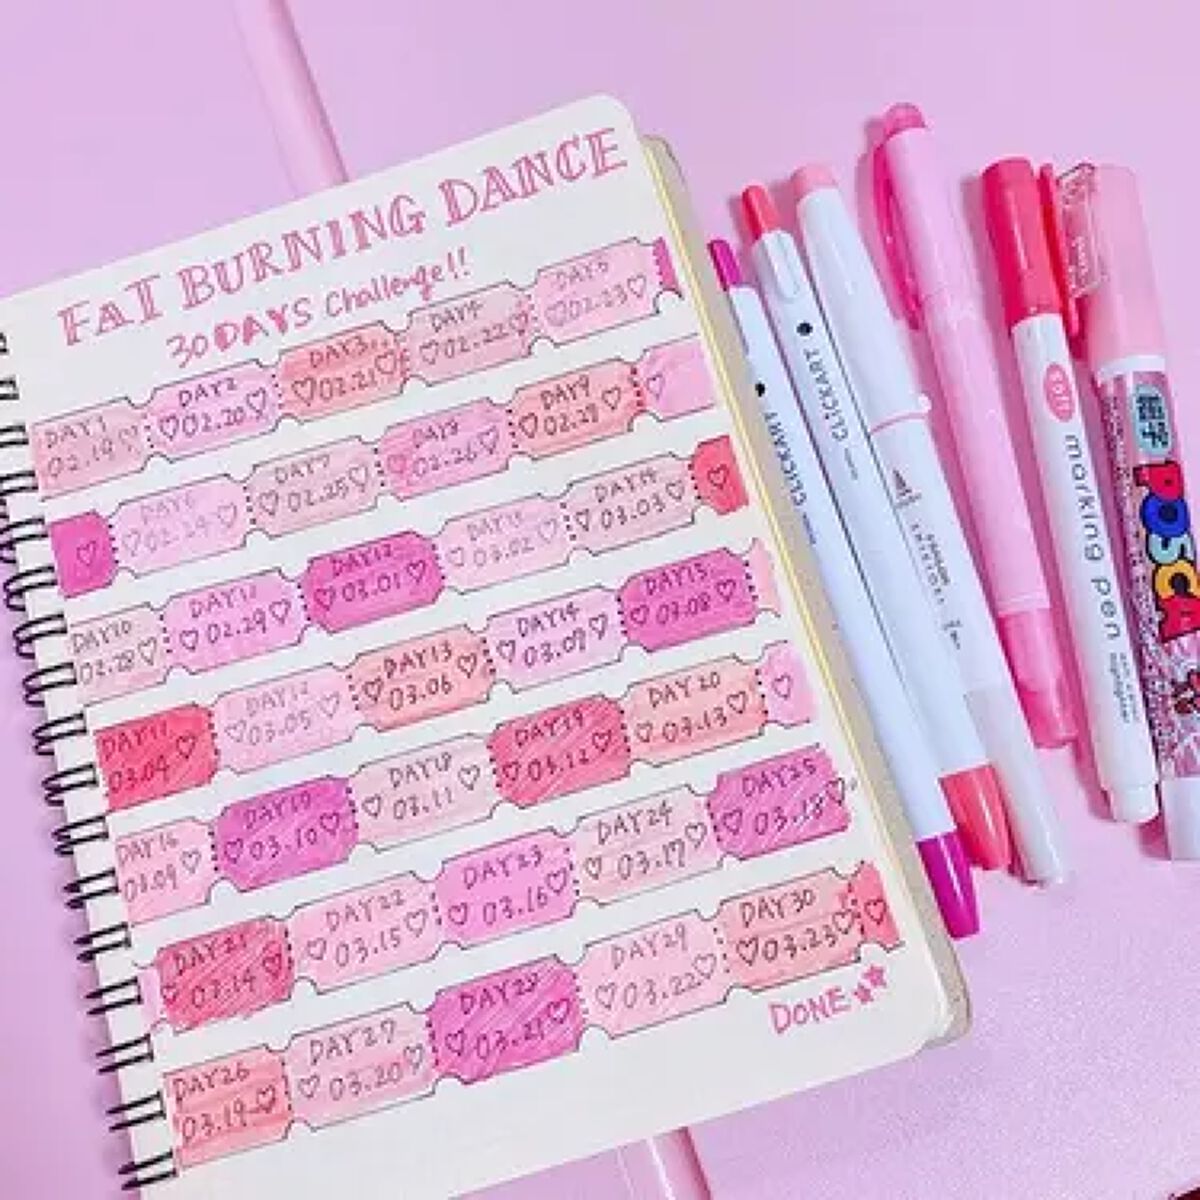 FAT BURNING DANCE
30DAYS Challenge!!
DAY1 DAY2 DAY3 DAY4 DAY5
02.19 02.20 02.21 02.22 02.23
DAY6 DAY7 DAY8 DAY9
02.24 02.25 02.26 02.27
DAY10 DAY12
02.28 02.29 03.01 03.02 03.03
DAY11 DAY12 DAY13 DAY14 DAY15
03.04 03.05 03.06 03.07 03.08
DAY16 DAY18 DAY19 DAY20
03.09 03.10 03.11 03.12 03.13
DAY21 DAY22 DAY23 DAY24 DAY25
03.14 03.15 03.16 03.17 03.18
DAY26 DAY27 DAY28 DAY29 DAY30
03.19 03.20 03.21 03.22 03.23
DONE
CLICKART
CLICKART
marking pen
POSCA